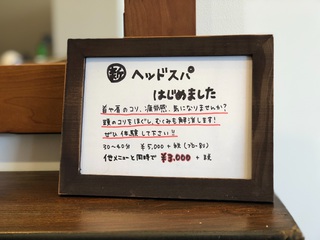 新 ヘッドスパ
はじめました
首や肩のコリ、疲労感、気になりませんか?
頭のコリをほぐし、むくみも解消します!
ぜひ 体験 して下さい
30〜40分 ¥5,000 + 税
他メニューと同時で ¥3,000 + 税